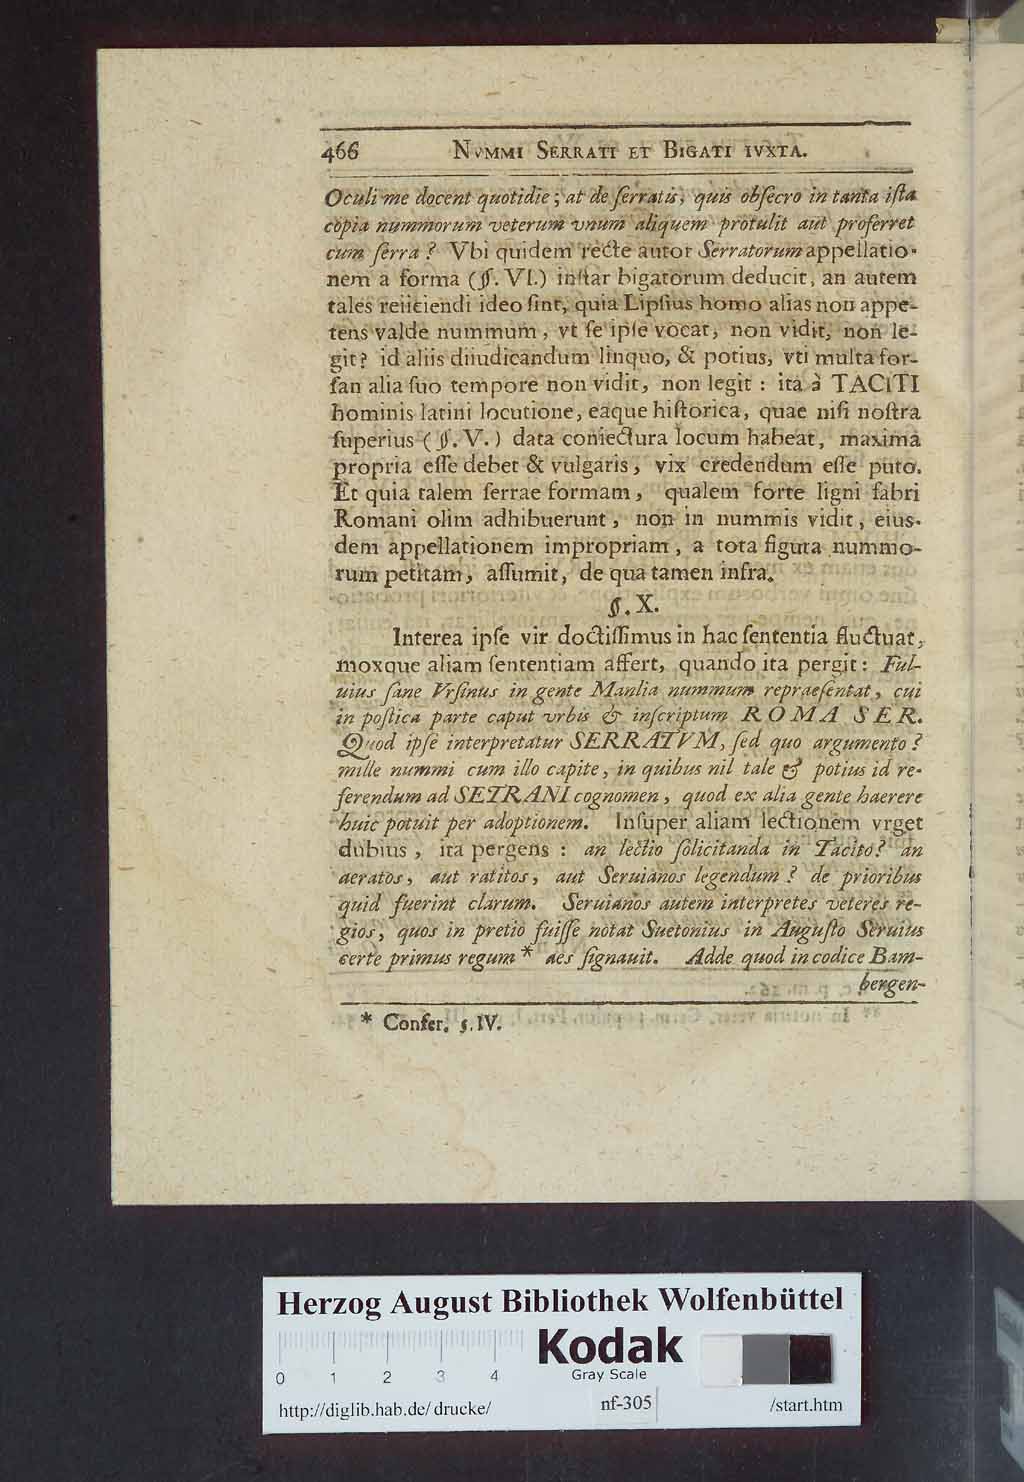 466 NVMMI SERRATI ET BIGATI IVXTA.
Oculi me docent quotidie; at de ſerratis, quis obſecro in tanta iſta
copia nummorum veterum vnum aliquem protulit aut proferret
cum ſerra? Vbi quidem recte autor Serratorum appellatio-
nem a forma (§. VI.) inſtar bigatorum deducit, an autem
tales reiiciendi ideo ſint, quia Lipſius homo alias non appe-
tens valde nummum, vt ſe ipſe vocat, non vidit, non le-
git? id aliis diiudicandum linquo, & potius, vti multa for-
ſan alia ſuo tempore non vidit, non legit: ita à TACITI
hominis latini locutione, eaque hiſtorica, quae niſi noſtra
ſuperius (§. V.) data coniectura locum habeat, maxima
propria eſſe debet & vulgaris, vix credendum eſſe puto.
Et quia talem ſerrae formam, qualem forte ligni fabri
Romani olim adhibuerunt, non in nummis vidit, eius-
dem appellationem impropriam, a tota figura nummo-
rum petitam, aſſumit, de qua tamen infra.
§. X.
Interea ipſe vir doctiſſimus in hac ſententia fluctuat,
moxque aliam ſententiam affert, quando ita pergit: Ful-
uius ſane Vrſinus in gente Manlia nummum repraeſentat, cui
in poſtica parte caput vrbis & inſcriptum ROMA SER.
Quod ipſe interpretatur SERRATVM, ſed quo argumento?
mille nummi cum illo capite, in quibus nil tale & potius id re-
ferendum ad SETRANI cognomen, quod ex alia gente haerere
huic potuit per adoptionem. Inſuper aliam lectionem vrget
dubius, ita pergens: an lectio ſolicitanda in Tacito? an
aeratos, aut ratitos, aut Seruianos legendum? de prioribus
quid fuerint clarum. Seruianos autem interpretes veteres re-
gios, quos in pretio fuiſſe notat Suetonius in Auguſto Seruius
certe primus regum * aes ſignauit. Adde quod in codice Bam-
bergen-
* Confer. §. IV.
Herzog August Bibliothek Wolfenbüttel
Kodak
Gray Scale
0 1 2 3 4
http://diglib.hab.de/drucke/ nf-305 /start.htm